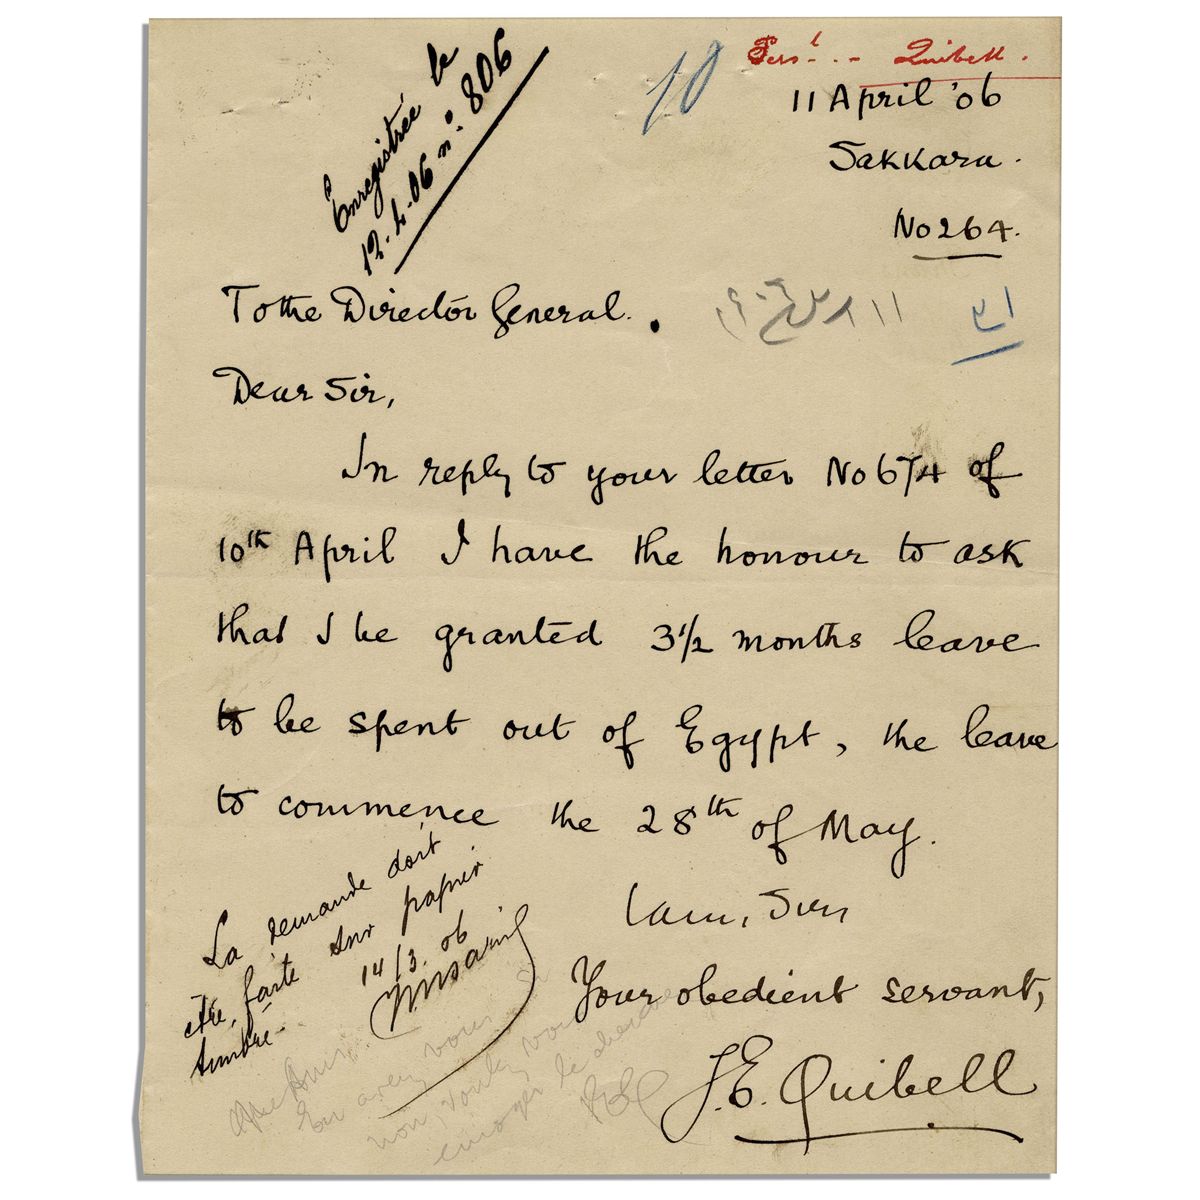 Enregistrée le
12.4.06 n°. 806
10
Persl - - - Quibell.
11 April '06
Sakkara.
No 264.
To the Director General.
١١ ابريل ٩٠٦
Dear Sir,
In reply to your letter No 674 of
10th April I have the honour to ask
that I be granted 3 1/2 months leave
to be spent out of Egypt, the leave
to commence the 28th of May.
I am, Sir,
Your obedient servant,
J. E. Quibell
La demande doit
être faite sur papier
timbré -
14/3.06
En avez vous
non, voulez vous